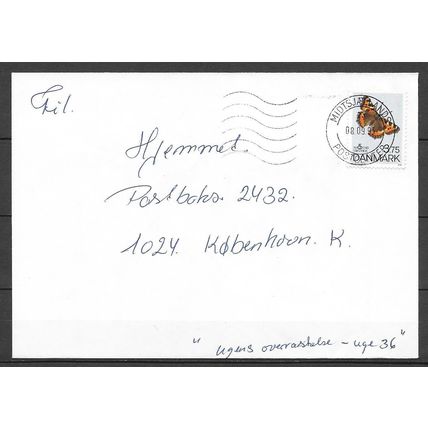 Til.
MIDTSJÆLLANDS
08.09.9
POST
3.75
DANMARK
Hjemmet.
Postboks. 2432.
1024. København. K.
" Ugens overraskelse - uge 36 "